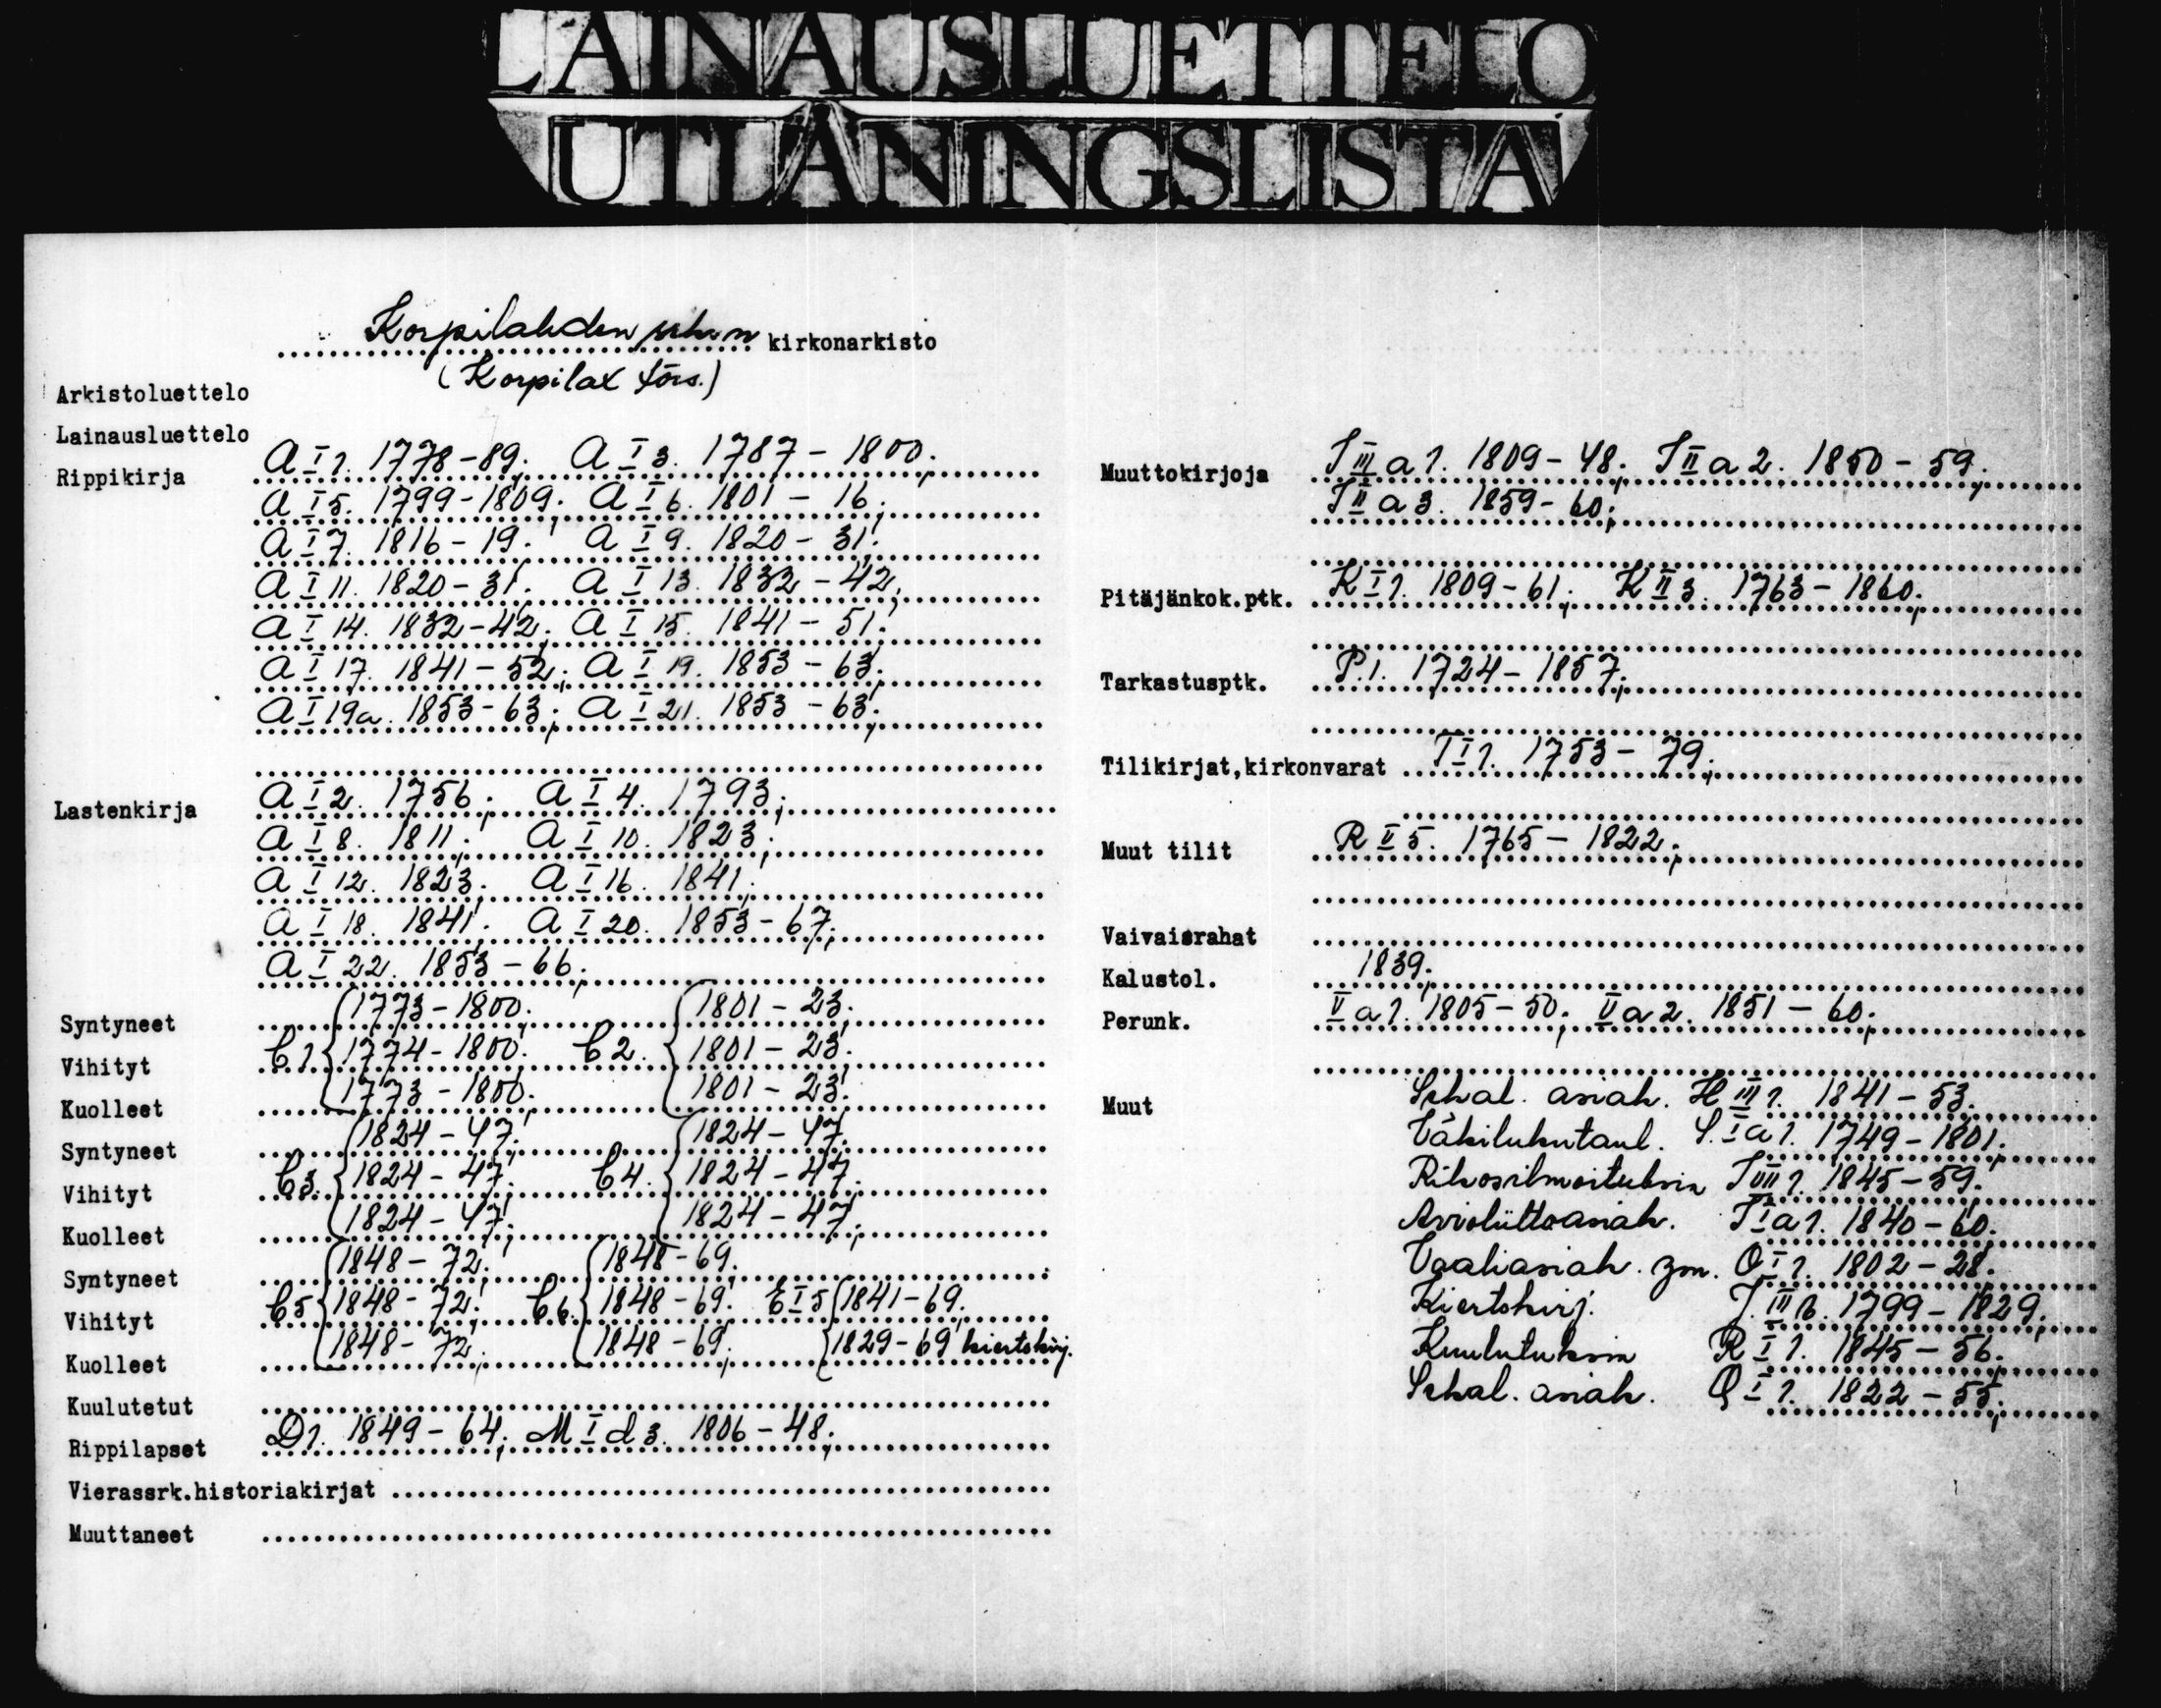 LAINAUSLUETTELO
UTLÅNINGSLISTA
Korpilahden srk:n kirkonarkisto
(Korpilax förs.)
Arkistoluettelo
Lainausluettelo
Rippikirja A I 1. 1778-89; A I 3. 1787-1800;
A I 5. 1799-1809; A I 6. 1801-16;
A I 7. 1816-19; A I 9. 1820-31;
A I 11. 1820-31; A I 13. 1832-42;
A I 14. 1832-42; A I 15. 1841-51;
A I 17. 1841-52; A I 19. 1853-63;
A I 19a. 1853-63; A I 21. 1853-63;
Lastenkirja A I 2. 1756; A I 4. 1793;
A I 8. 1811; A I 10. 1823;
A I 12. 1823; A I 16. 1841;
A I 18. 1841; A I 20. 1853-67;
A I 22. 1853-66;
Syntyneet 1773-1800; 1801-23;
Vihityt C1 1774-1800; C2. 1801-23;
Kuolleet 1773-1800; 1801-23;
Syntyneet 1824-47; 1824-47;
Vihityt C3. 1824-47; C4. 1824-47;
Kuolleet 1824-47; 1824-47;
Syntyneet 1848-72; 1848-69;
Vihityt C5 1848-72; C6. 1848-69; E I 5 1841-69;
Kuolleet 1848-72; 1848-69; 1829-69 kiertokirj.
Kuulutetut
Rippilapset D1. 1849-64; M I d 3. 1806-48;
Vierassrk.historiakirjat
Muuttaneet
Muuttokirjoja I III a 1. 1809-48; I II a 2. 1850-59;
I II a 3. 1859-60;
Pitäjänkok.ptk. K I 1. 1809-61; K II 3. 1763-1860;
Tarkastusptk. P.1. 1724-1857;
Tilikirjat,kirkonvarat T I 1. 1753-79;
Muut tilit R II 5. 1765-1822;
Vaivaisrahat
Kalustol. 1839;
Perunk. V a 1. 1805-50; V a 2. 1851-60;
Muut Sekal. asiak. H III 1. 1841-53;
Väkilukutaul. I a 1. 1749-1801;
Rikosilmoituksia I VII 1. 1845-59;
Avioliittoasiak. I I a 1. 1840-60;
Vaaliasiak. ym. O I 1. 1802-28;
Kiertokirj. J. III 1799-1829;
Kuulutuksia R I 1. 1845-56;
Sekal. asiak. Q I 1. 1822-55;